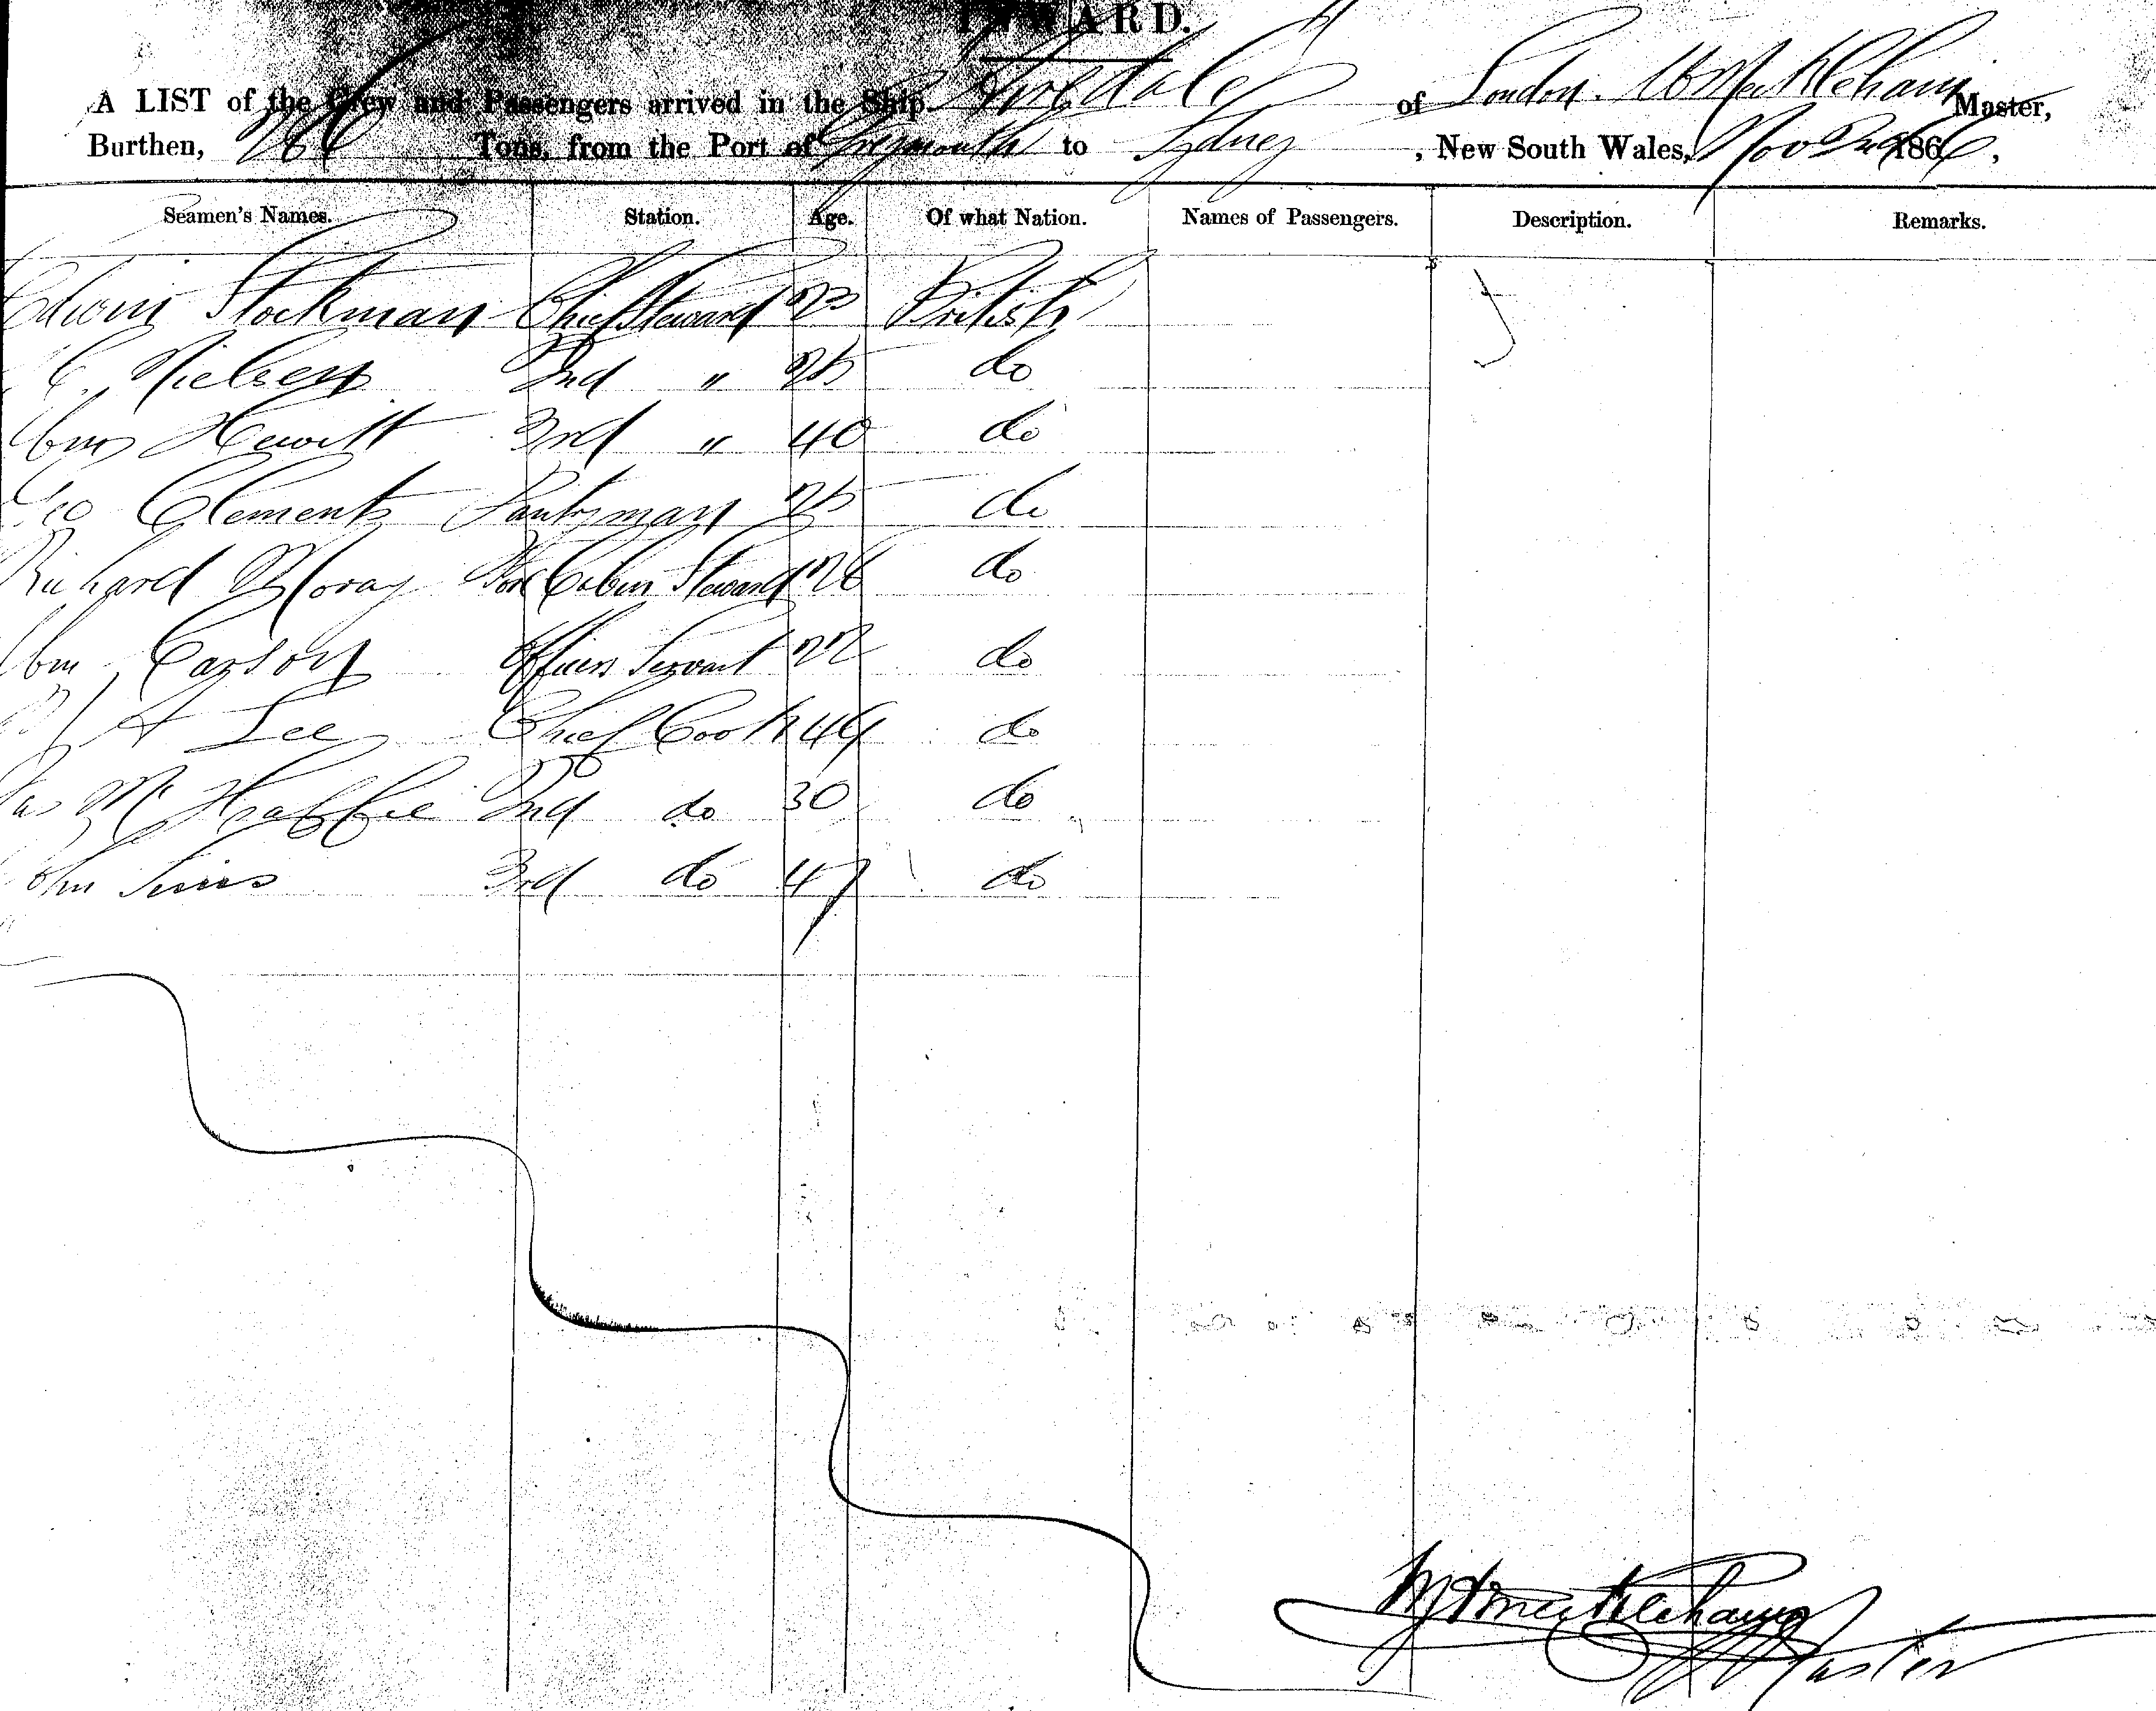 INWARD.
A LIST of the Crew and Passengers arrived in the Ship Airedale of London. Master,
Burthen, 286 Tons, from the Port of Greymouth to Sydney, New South Wales, Nov 2nd 1866,
Seamen's Names. Station. Age. Of what Nation. Names of Passengers. Description. Remarks.
Edwin Stockman Chief Steward 23 British
C. Nielsen 2nd " 25 do
Wm Hewitt 3rd " 40 do
Geo Clements Pantryman 25 do
Richard Moray Fore Cabin Steward 26 do
Wm Carson Officers Servant 22 do
A Lee Chief Cook 44 do
Jas Mc Haffie 2nd do 30 do
John 3rd do 47 do
Master